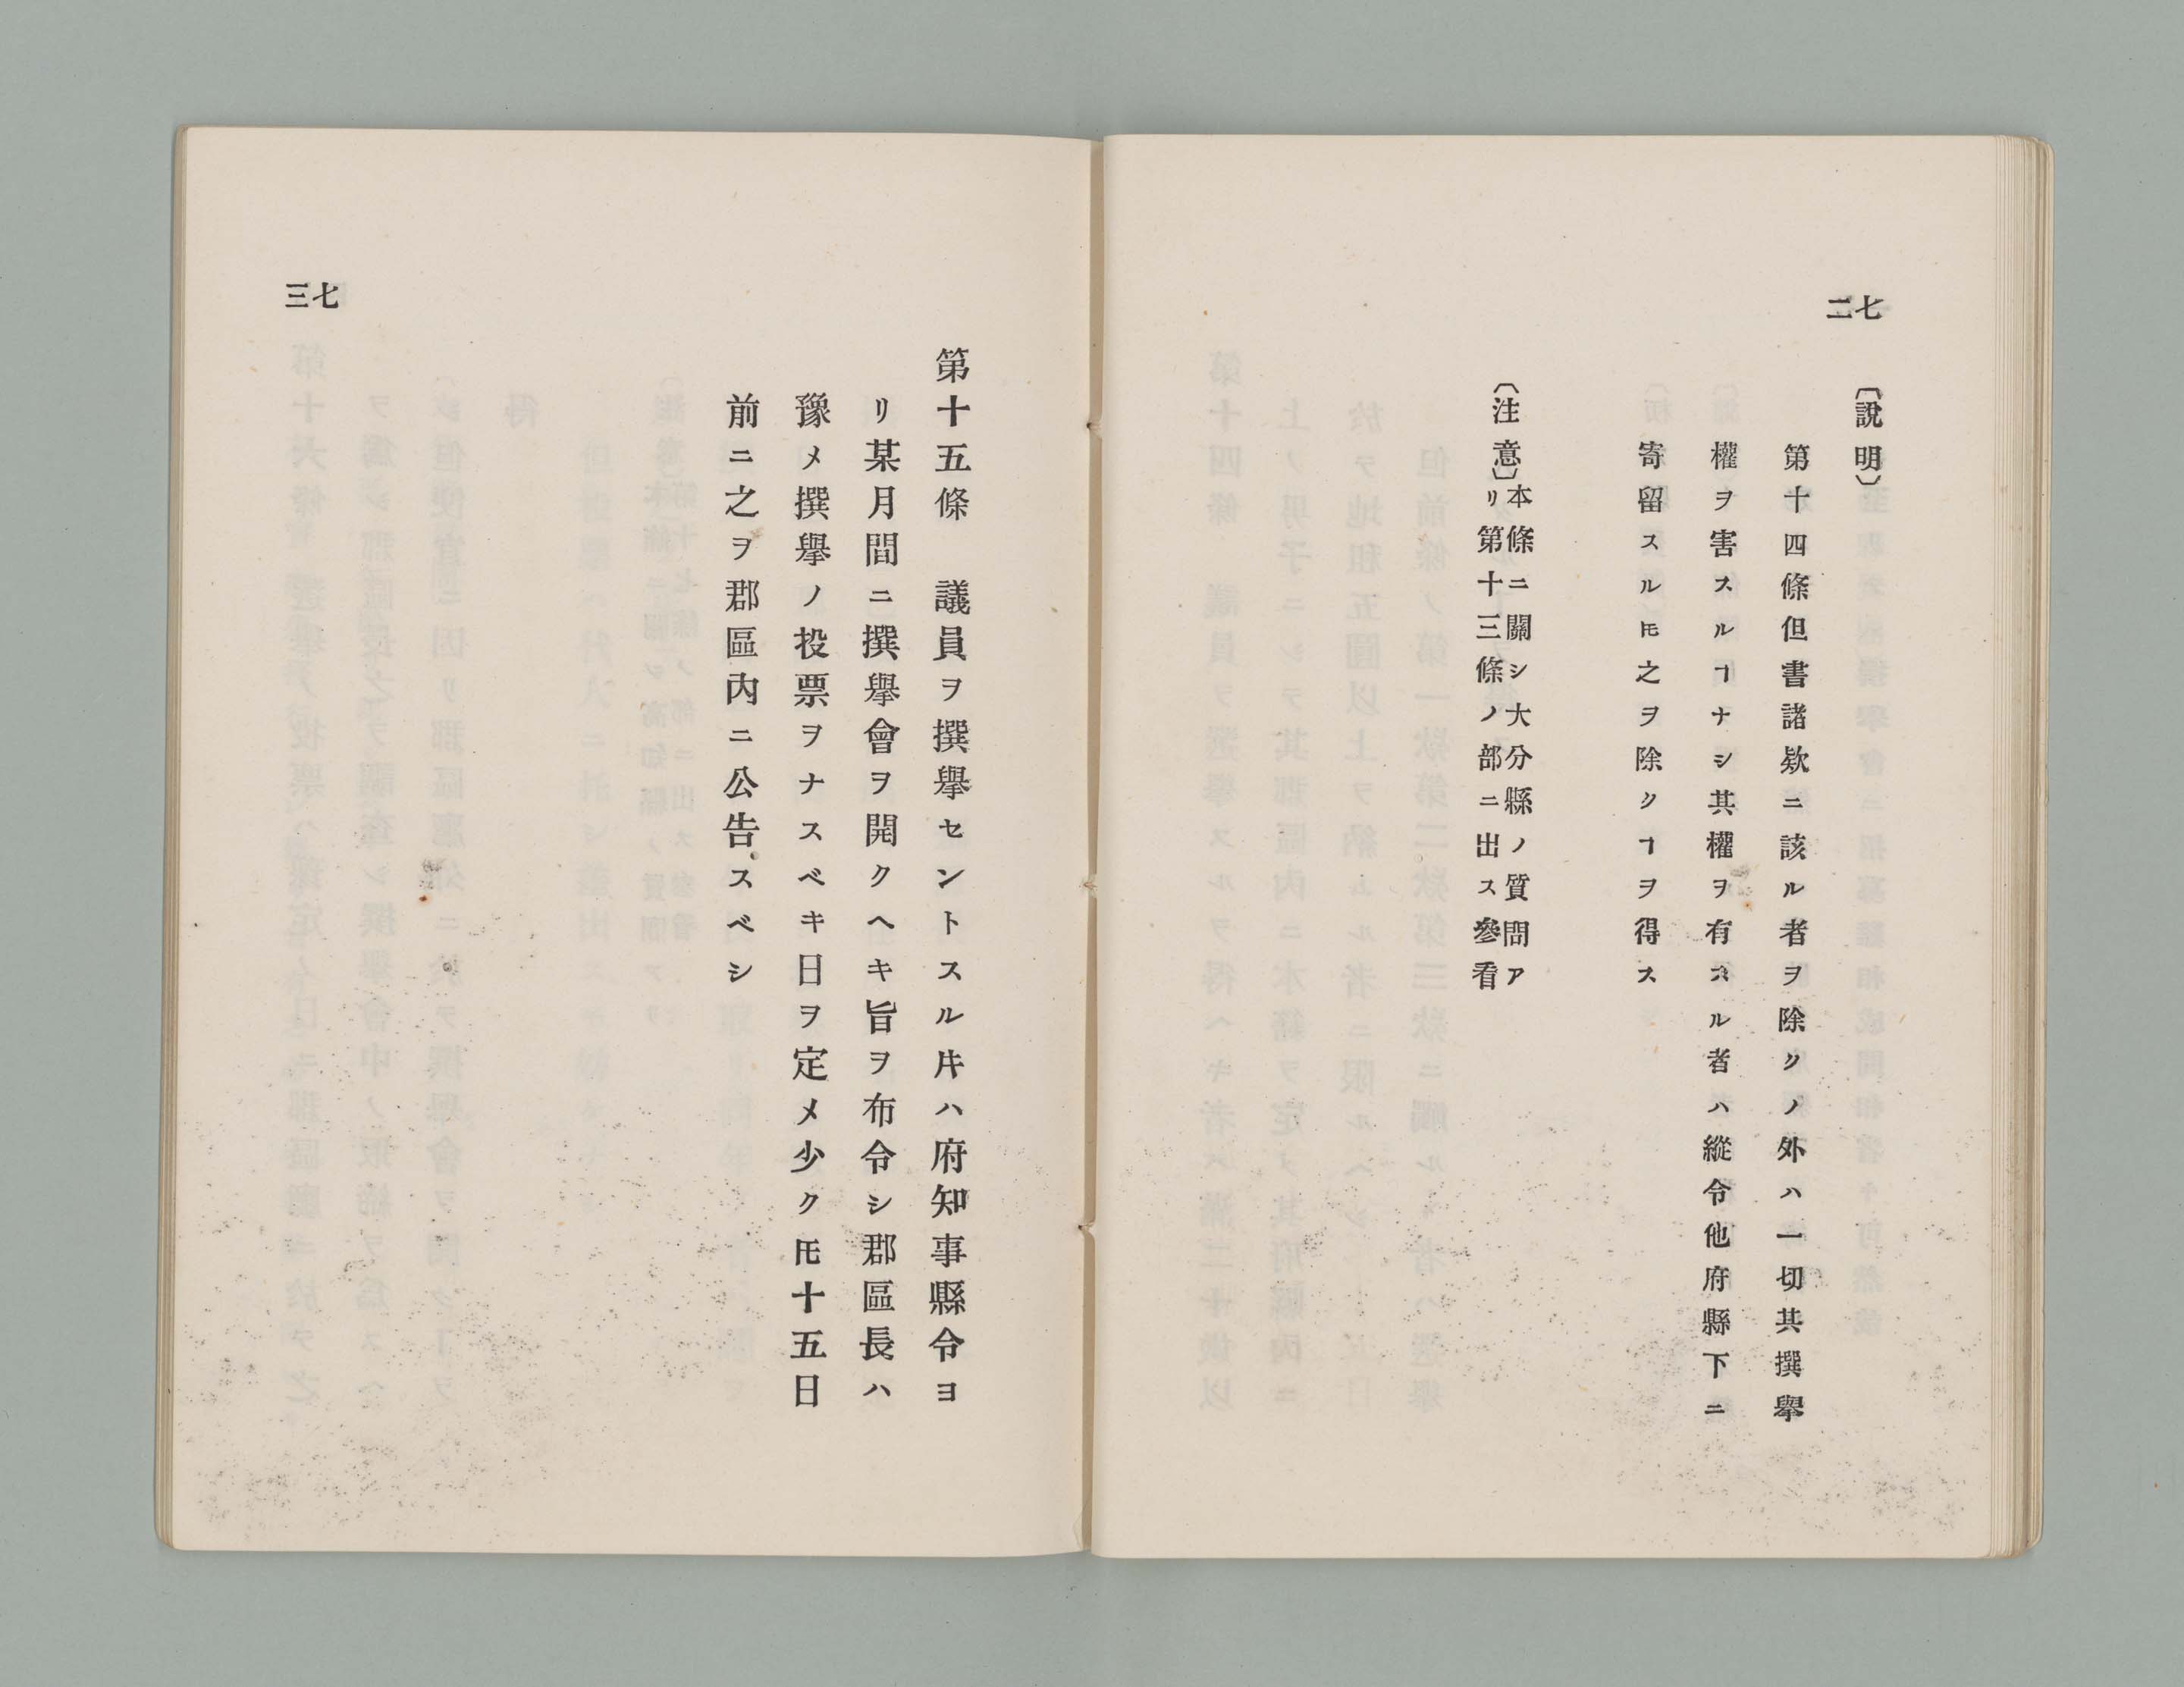 二七
〔說明〕
第十四條但書諸欵ニ該ル者ヲ除クノ外ハ一切其撰擧
權ヲ害スルヿナシ其權ヲ有スル者ハ縱令他府縣下ニ
寄留スルトモ之ヲ除クヿヲ得ス
〔注意〕本條ニ關シ大分縣ノ質問ア
リ第十三條ノ部ニ出ス參看
三七
第十五條　議員ヲ撰擧セントスル𪜈ハ府知事縣令ヨ
リ某月間ニ撰擧會ヲ開クヘキ旨ヲ布令シ郡區長ハ
豫メ撰擧ノ投票ヲナスベキ日ヲ定メ少クトモ十五日
前ニ之ヲ郡區內ニ公告スベシ